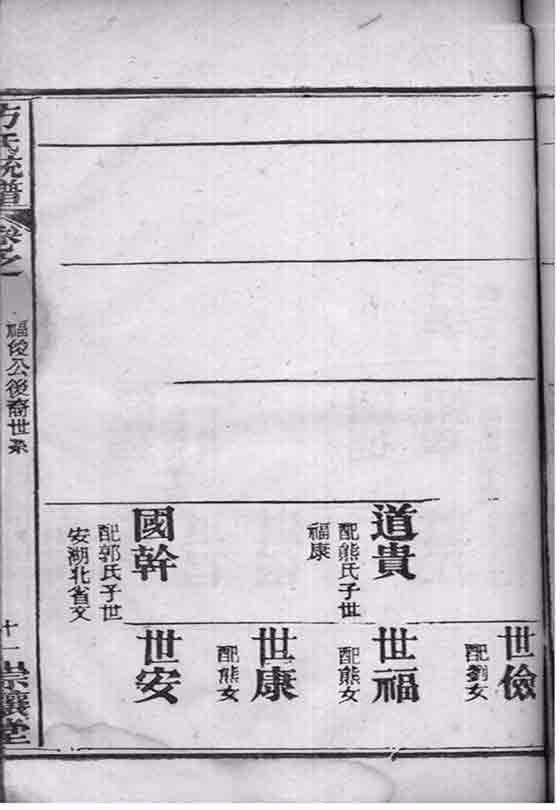 世儉
配劉女
道貴
配熊氏子世
福康
世福
配熊女
世康
配熊女
國幹
配郭氏子世
安湖北省文
世安
方氏統譜
卷之一
福俊公後裔世系
十一
崇讓堂